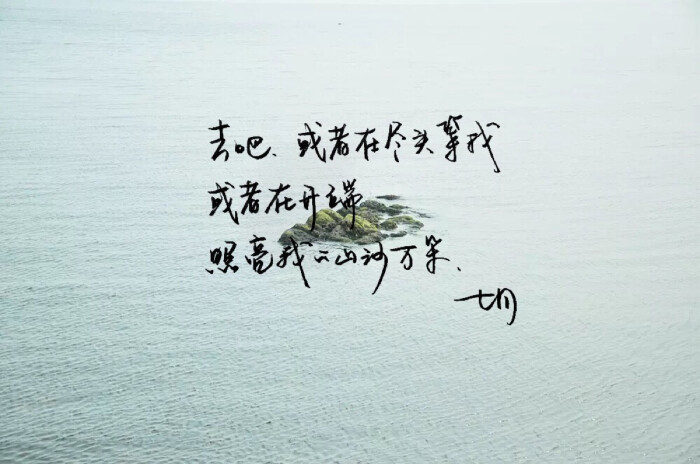 去吧、或者在尽头等我
或者在开端
照亮我山河万朵、
七月